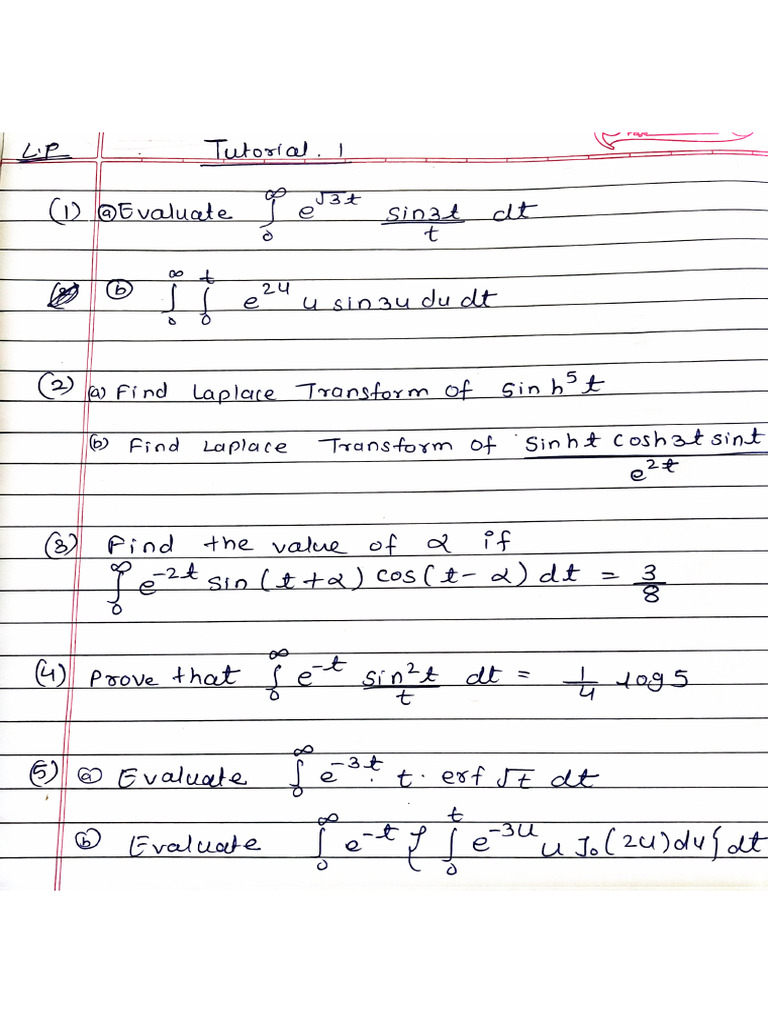 L.P Tutorial. 1
(1) (a) Evaluate ∫₀^∞ e^{√3t} sin3t/t dt
(b) ∫₀^∞ ∫₀^t e^{2u} u sin3u du dt
(2) (a) Find Laplace Transform of sinh⁵t
(b) Find Laplace Transform of sinht cosh3t sint / e^{2t}
(3) Find the value of α if
∫₀^∞ e^{-2t} sin(t+α) cos(t-α) dt = 3/8
(4) Prove that ∫₀^∞ e^{-t} sin²t/t dt = 1/4 log5
(5) (a) Evaluate ∫₀^∞ e^{-3t} t. erf √t dt
(b) Evaluate ∫₀^∞ e^{-t} { ∫₀^t e^{-3u} u J₀(2u) du } dt